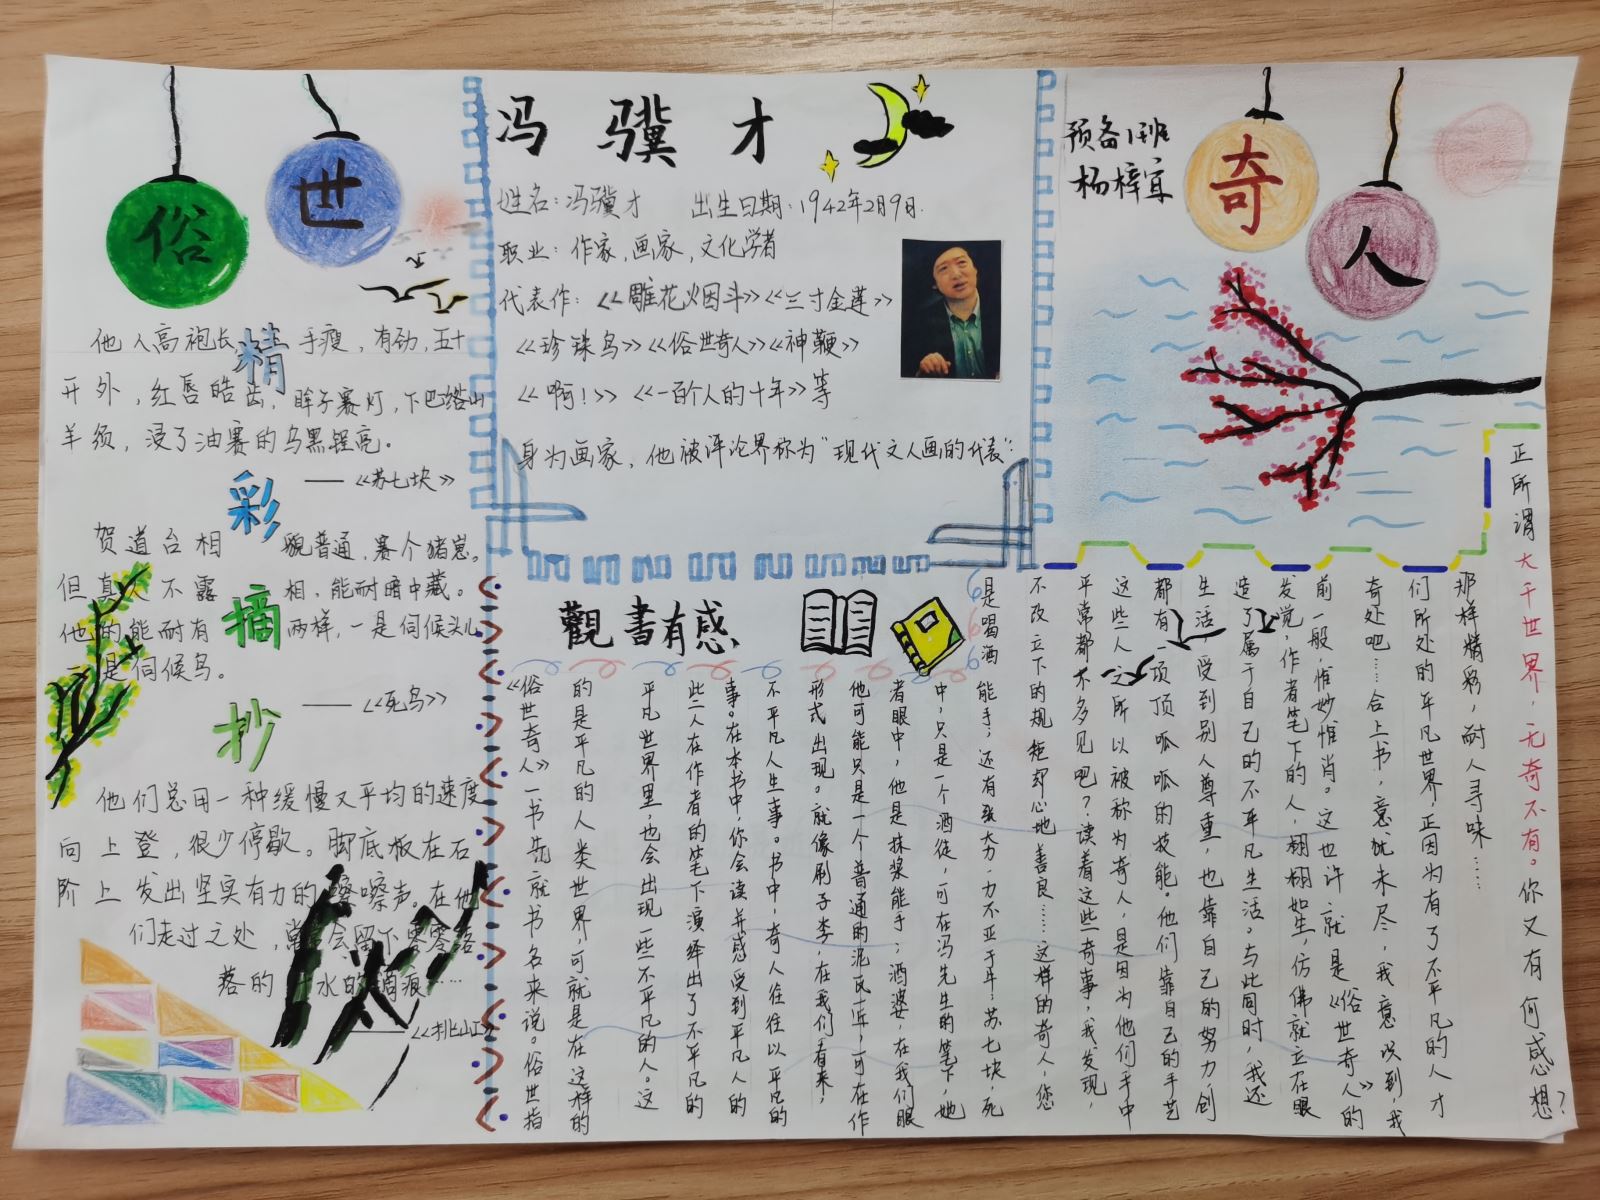 俗世奇人
冯骥才
预备1班
杨梓宜
姓名：冯骥才 出生日期：1942年2月9日.
职业：作家,画家,文化学者
代表作：《雕花烟斗》《三寸金莲》
《珍珠鸟》《俗世奇人》《神鞭》
《啊！》《一百个人的十年》等
身为画家，他被评论界称为“现代文人画的代表”
精彩摘抄
他人高袍长 手瘦，有劲，五十
开外，红唇皓齿，眸子赛灯，下巴绺山
羊须，浸了油赛的乌黑锃亮。
——《苏七块》
贺道台相貌普通，赛个猪崽。
但真人不露相，能耐暗中藏。
他的能耐有两样，一是伺候头儿
是伺候鸟。
——《死鸟》
他们总用一种缓慢又平均的速度
向上登，很少停歇。脚底板在石
阶上发出坚实有力的嚓嚓声。在他
们走过之处，常会留下零零落
落的汗水的滴痕……
《挑山工》
觀書有感
《俗世奇人》一书先就书名来说。俗世指
的是平凡的人类世界，可就是在这样的
平凡世界里，也会出现一些不平凡的人。这
些人在作者的笔下演绎出了不平凡的
事。在本书中，你会读并感受到平凡人的
不平凡人生事。书中，奇人往往以平凡的
形式出现。就像刷子李，在我们看来，
他可能只是一个普通的泥瓦匠，可在作
者眼中，他是抹浆能手；酒婆，在我们眼
中，只是一个酒徒，可在冯先生的笔下，她
是喝酒能手；还有张大力，力不亚于牛；苏七块，死
不改立下的规矩却心地善良……这样的奇人，您
平常都不多见吧？读着这些奇事，我发现，
这些人之所以被称为奇人，是因为他们手中
都有一项顶顶呱呱的技能。他们靠自己的手艺
生活，受到别人尊重，也靠自己的努力创
造了属于自己的不平凡生活。与此同时，我还
发觉，作者笔下的人，栩栩如生，仿佛就立在眼
前一般，惟妙惟肖。这也许就是《俗世奇人》的
奇处吧……合上书，意犹未尽，我意识到，我
们所处的平凡世界，正因为有了不平凡的人才
那样精彩，耐人寻味……
正所谓大千世界，无奇不有。你又有何感想？